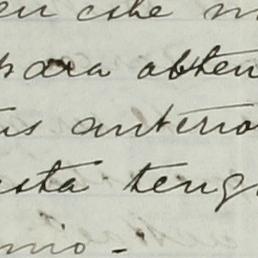 en este m
para obten
us anterio
esta teng
mio.-